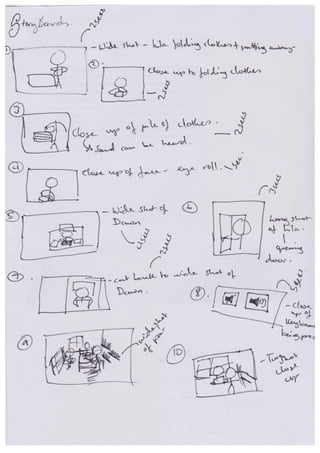 Storyboards.
2secs
① - Wide shot - Lila folding clothes + putting away.
② .
Close up to folding clothes
2secs
③
Close up of pile of clothes.
Sound can be heard.
2secs
④
Close up of face - eye roll.
1sec
⑤
- Wide shot of
Dawn
4secs
⑥
3secs
Long shot
of Lila.
opening
door.
⑦ .
2secs
- cut back to wide shot of
Dawn.
⑧ .
2secs
- Close
up of
Keyboard
being
⑨
wide shot
of
⑩
- Two shot
close
up